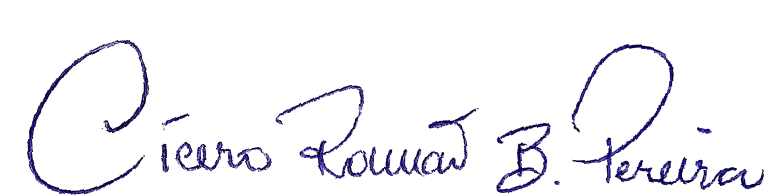 Cícero Romão B. Pereira